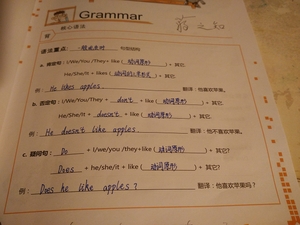 Grammar
核心语法
语法重点: 一般现在时 句型结构
a. 肯定句: I/We/You /They+ like ( 动词原形 ) + 其它.
He/She/It + likes ( 动词的三单形式 ) + 其它.
例: He likes apples. 翻译: 他喜欢苹果。
b. 否定句: I/We /You /They+ don't + like ( 动词原形 ) + 其它.
He/She/It + doesn't + like ( 动词原形 ) + 其它.
例: He doesn't like apples. 翻译: 他不喜欢苹果。
c. 疑问句: Do + I/we/you /they+like ( 动词原形 ) + 其它?
Does + he/she/it + like ( 动词原形 ) + 其它?
例: Does he like apples? 翻译: 他喜欢苹果吗?